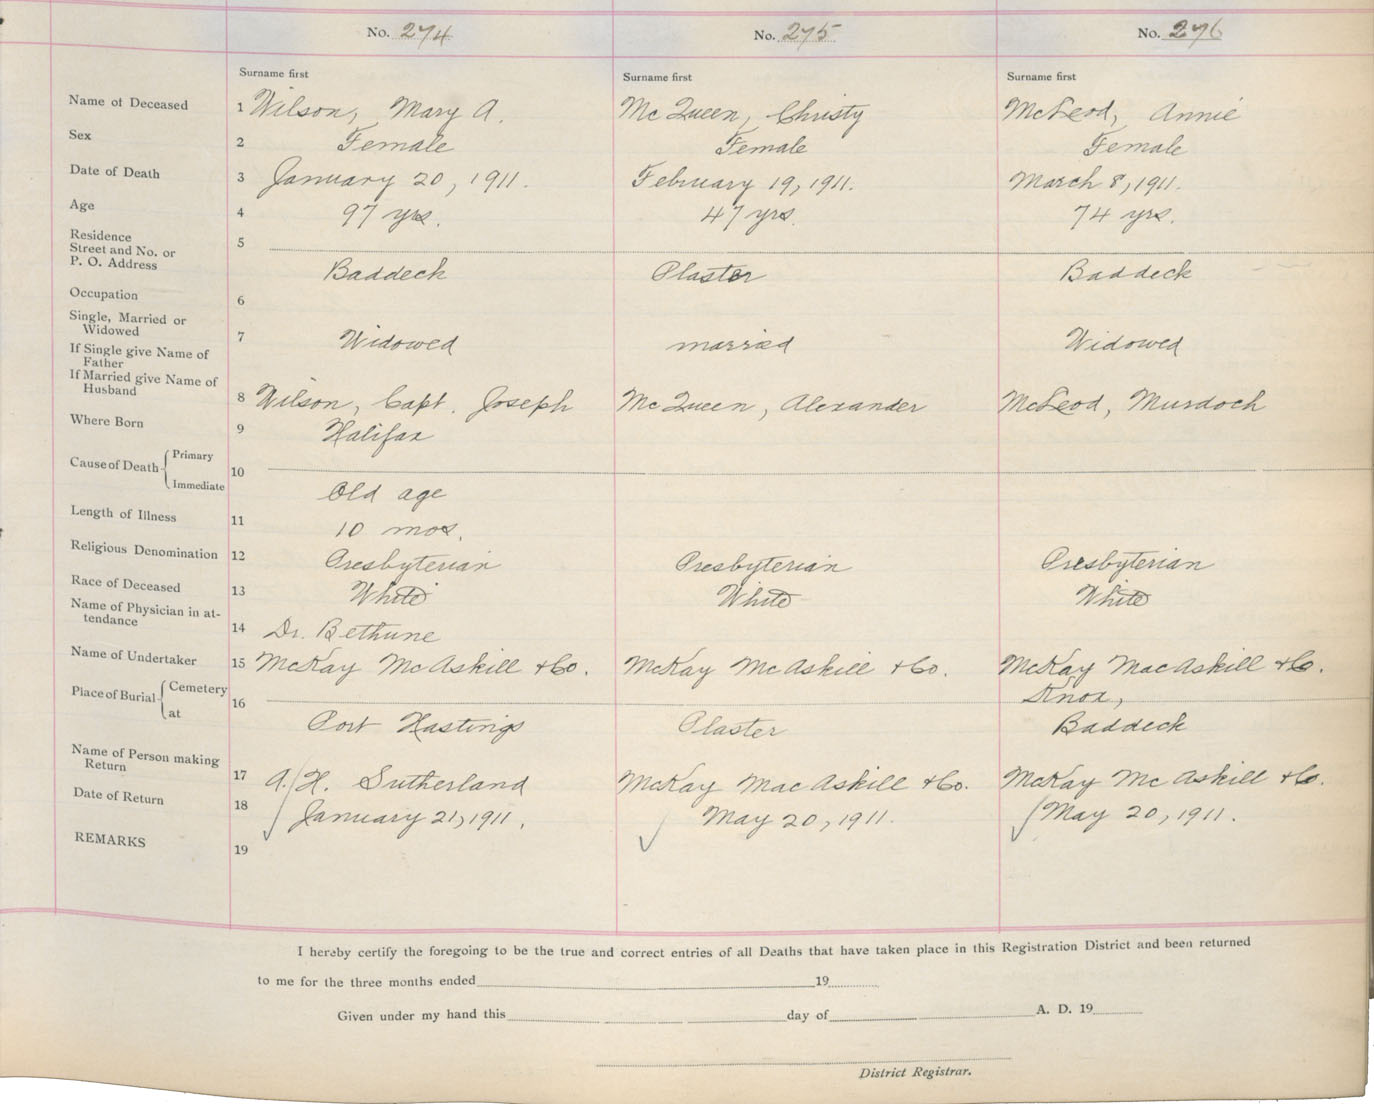 No. 274 No. 275 No. 276
Surname first Surname first Surname first
Name of Deceased 1 Wilson, Mary A. McQueen, Christy McLeod, Annie
Sex 2 Female Female Female
Date of Death 3 January 20, 1911. February 19, 1911. March 8, 1911.
Age 4 97 yrs. 47 yrs. 74 yrs.
Residence
Street and No. or 5
P. O. Address Baddeck Plaster Baddeck
Occupation 6
Single, Married or
Widowed 7 Widowed married Widowed
If Single give Name of
Father
If Married give Name of
Husband 8 Wilson, Capt. Joseph McQueen, Alexander McLeod, Murdoch
Where Born 9 Halifax
Cause of Death Primary 10
Immediate Old age
Length of Illness 11 10 mos.
Religious Denomination 12 Presbyterian Presbyterian Presbyterian
Race of Deceased 13 White White White
Name of Physician in at-
tendance 14 Dr. Bethune
Name of Undertaker 15 McKay McAskill & Co. McKay McAskill & Co. McKay MacAskill & Co.
Place of Burial Cemetery 16 Knox,
at Port Hastings Plaster Baddeck
Name of Person making
Return 17 A. H. Sutherland McKay MacAskill & Co. McKay McAskill & Co.
Date of Return 18 January 21, 1911. May 20, 1911. May 20, 1911.
REMARKS 19
I hereby certify the foregoing to be the true and correct entries of all Deaths that have taken place in this Registration District and been returned
to me for the three months ended 19
Given under my hand this day of A. D. 19
District Registrar.